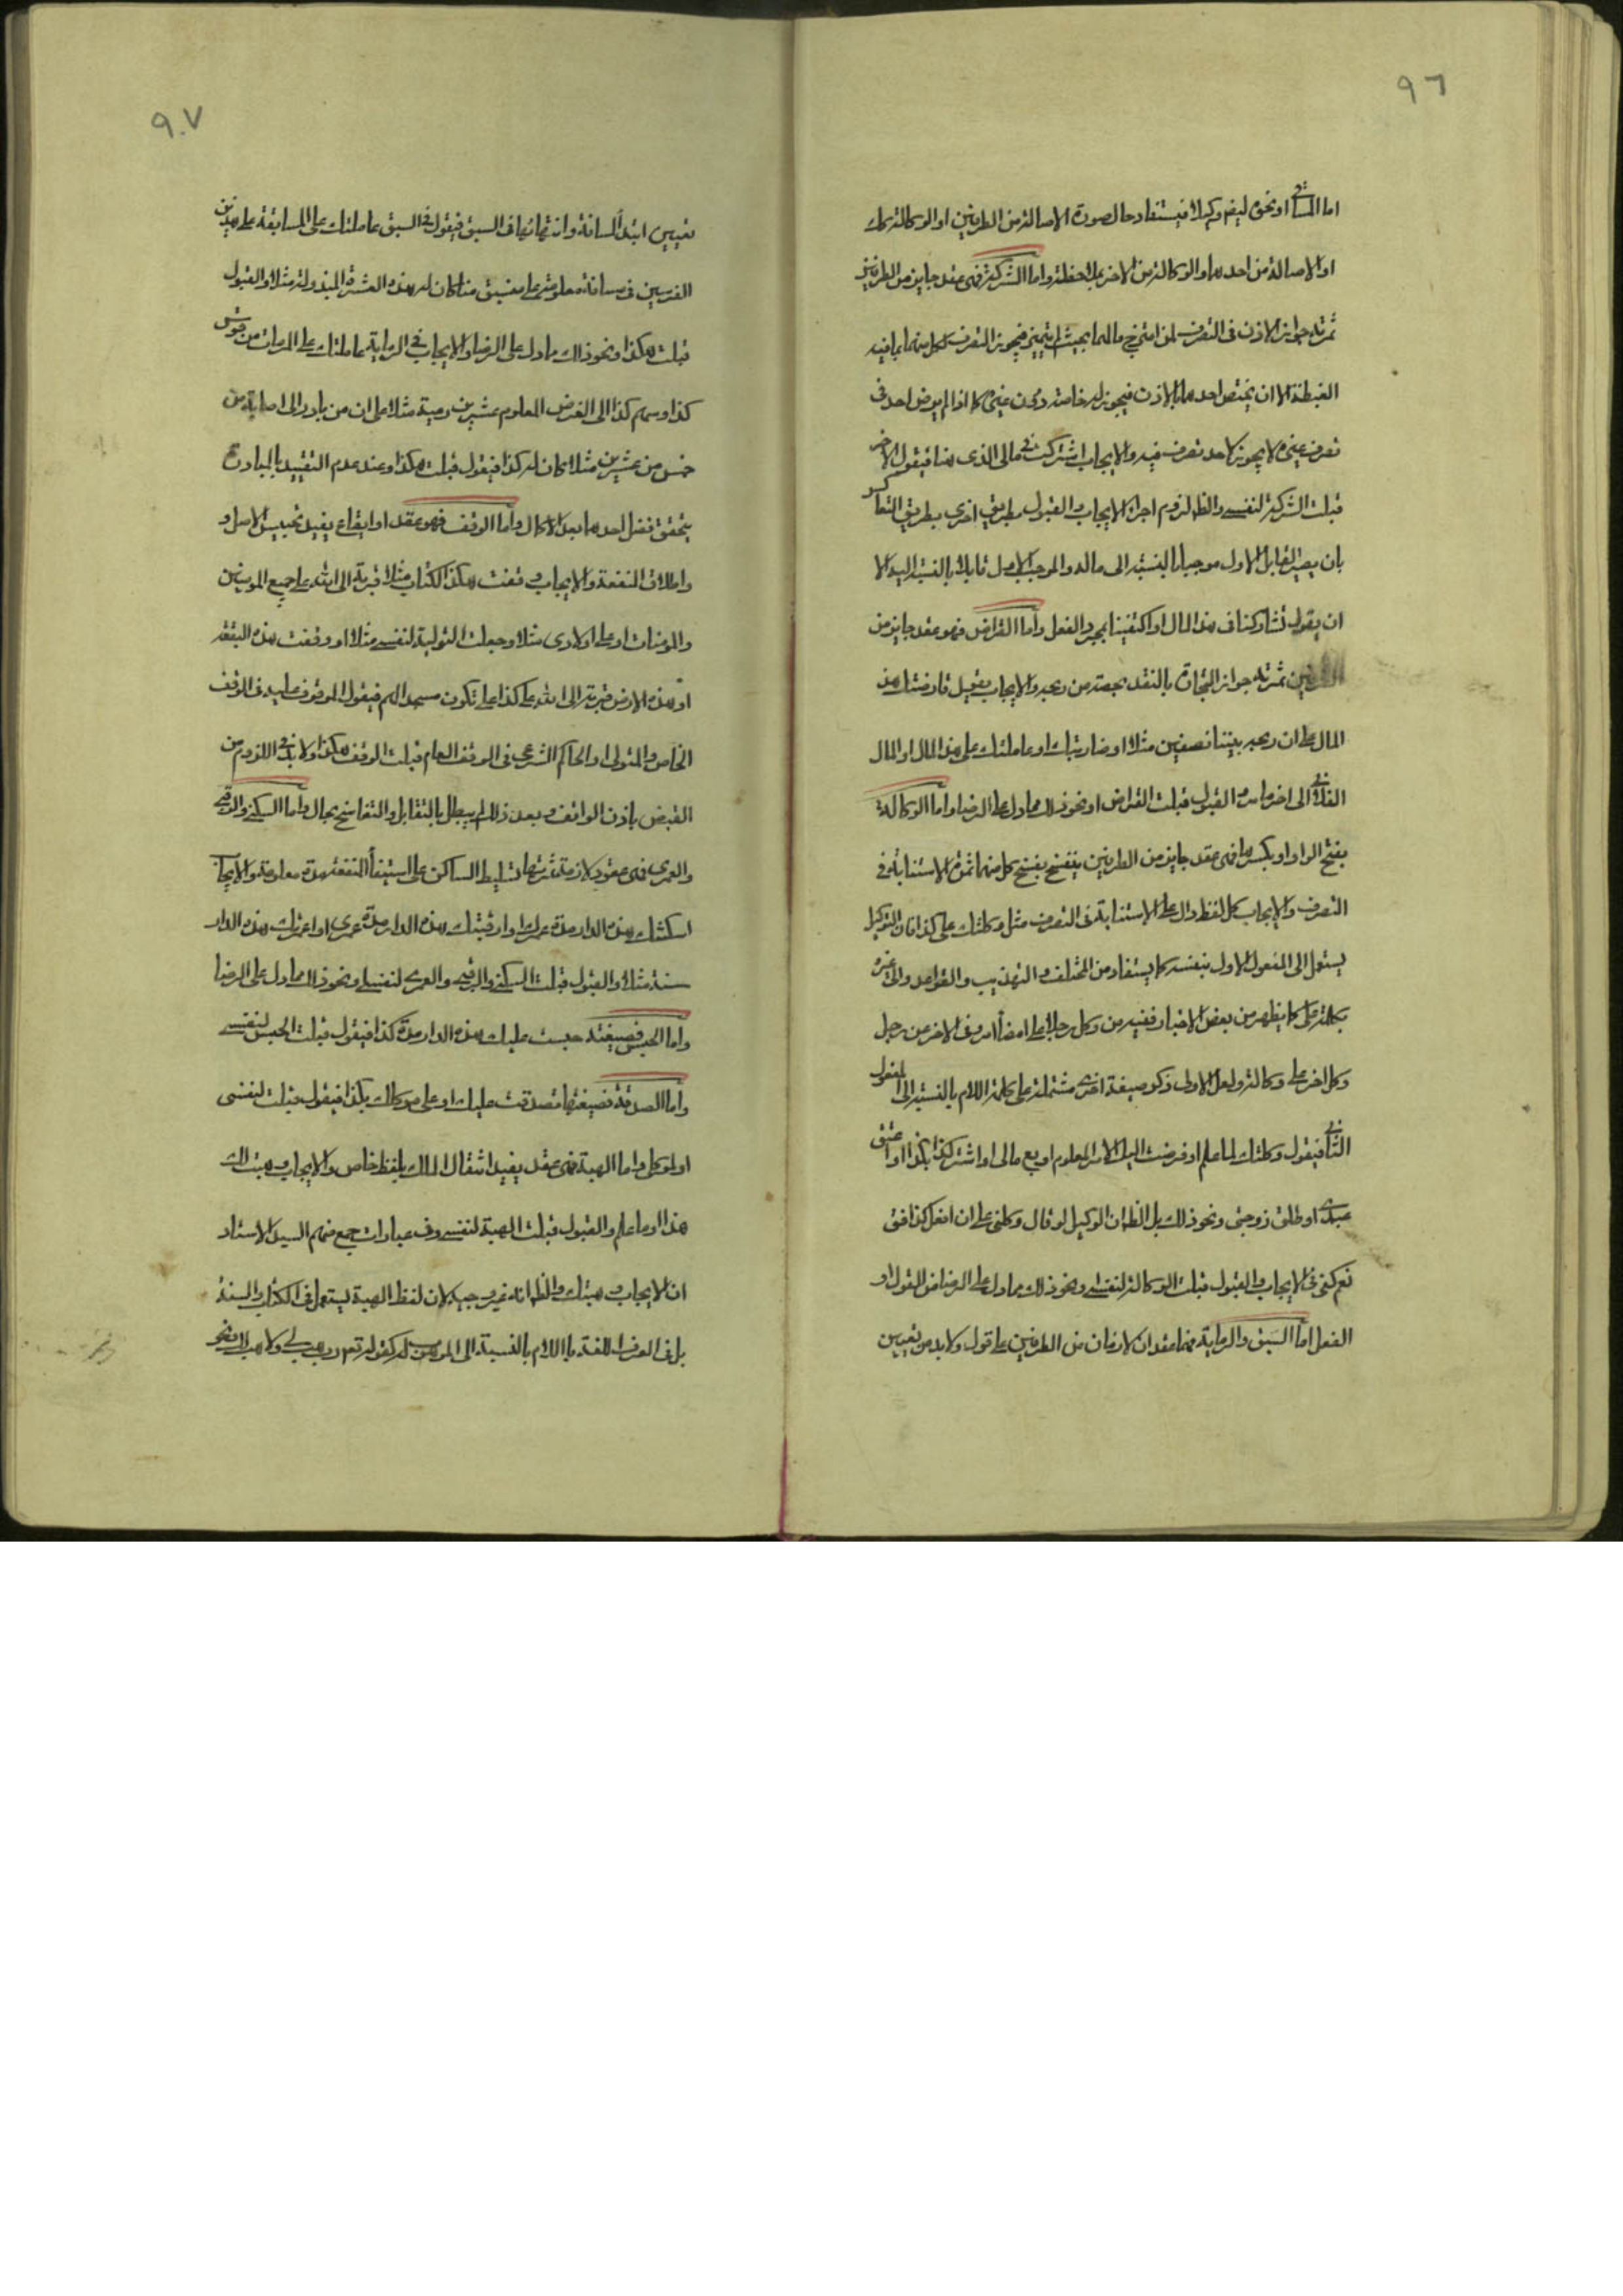 ٩٦
اما المساقي او نحوه ليفهم وكيلا فيستفاد حال صورة الاصالة من الطرفين او الوكالة كذلك
او الاصالة من احدهما والوكالة من الاخر بملاحظة واما الشركة فهي عقد جايز من الطرفين
ثمرته جواز الاذن في التصرف لمن امتزج مالهما بحيث لا يتميز فيجوز التصرف لكل منهما بما فيه
الغبطة الا ان يختص احدهما بالاذن فيجوز له خاصة دون غيره كما اذا لم يرض احد في
تصرف غيره لا يجوز لاحد تصرف فيه والايجاب اشتركت في مالي الذي هنا فيقول الاخر
قبلت الشركة لنفسي والظ لزوم اجراء الايجاب والقبول بطريق اخرى بطريق التعاكس
بان يصير القابل الاول موجبا بالنسبة الى ماله والموجب الاول قابلا بالنسبة اليه الا
ان يقول تشاركنا في هذا المال او اكتفينا بمجرد الفعل واما القراض فهو عقد جايز من
الطرفين ثمرته جواز التجارة بالنقد بحصة من ربحه والايجاب يقول قارضتك هذا
المال على ان ربحه بيننا نصفين مثلا او ضاربتك او عاملتك على هذا المال او المال
الفلاني الى اخر ما مر والقبول قبلت القراض او نحو ذلك مما دل على الرضا واما الوكالة
بفتح الواو او بكسرها فهي عقد جايز من الطرفين ينفسخ بفسخ كل منهما ثمرته الاستنابة في
التصرف والايجاب كل لفظ دال على الاستنابة في التصرف مثل وكلتك على كذا فان التوكيل
يستعمل الى المفعول الاول بنفسه كما يستفاد من المختلف والتهذيب والقواعد والى غيره
بكلمة على كما يظهر من بعض الاخبار ففيه من وكل رجلا على امضاء امر وفي الاخر عن رجل
وكل اخر على وكالة ولعل الاولى ذكر صيغة اخرى مشتملة على كلمة اللام بالنسبة الى المفعول
الثاني فيقول وكلتك لما علم او فوضت اليك الامر المعلوم او بع مالي او اشتر كذا بكذا او اعتق
عبدي او طلق زوجتي ونحو ذلك بل الظ ان الوكيل لو قال وكلني على ان افعل كذا فق
نعم كفى في الايجاب والقبول قبلت الوكالة لنفسي ونحو ذلك مما دل على الرضا من القول او
الفعل اما السبق والرماية فهما عقدان لازمان من الطرفين على قول ولا بد من تعيين
٩٧
تعيين ابتداء المسافة وانتهائها في السبق فيقول في السبق عاملتك على المسابقة على هذين
الفرسين في مسافة معلومة على من سبق منا كان له هذه العشرة المبذولة مثلا والقبول
قبلت هكذا ونحو ذلك مما دل على الرضا والايجاب في الرماية عاملتك على المرمات من قوس
كذا وسهم كذا الى الغرض المعلوم عشرين رمية مثلا على ان من بادر الى اصابة من
خمس من عشرين مثلا كان له كذا فيقول قبلت هكذا وعند عدم التقييد بالمبادرة
يتحقق فضل احدهما بعد الاكمال واما الوقف فهو عقد او ايقاع يفيد تحبيس الاصل و
واطلاق المنفعة والايجاب وقفت هكذا الكتاب مثلا قربة الى الله على جميع المومنين
والمومنات او على اولادي مثلا وجعلت التولية لنفسي مثلا او وقفت هذه البقعة
او هذه الارض قربة الى الله على كذا على تكون مسجدا لهم فيقول الموقوف عليه في الوقف
الخاص والمتولي او الحاكم الشرعي في الوقف العام قبلت الوقف هكذا ولا بد في اللزوم من
القبض باذن الواقف وبعد ذلك لم يبطل بالتقابل والتفاسخ بحال واما السكنى والرقبى
والعمرى فهي عقود لازمة ثمرتها تسليط الساكن على استيفاء المنفعة مدة معلومة والايجاب
اسكنتك هذه الدار مدة عمرك او ارقبتك هذه الدار مدة عمري او اعمرتك هذه الدار
سنة مثلا والقبول قبلت السكنى والرقبى والعمرى لنفسي ونحو ذلك مما دل على الرضا
واما الحبس فصيغته حبست عليك هذه الدار مدة كذا فيقول قبلت الحبس لنفسي
واما الصدقة فصيغتها تصدقت عليك او على موكلك بكذا فيقول قبلت لنفسي
او لموكلي واما الهبة فهي عقد يفيد انتقال الملك بلفظ خاص والايجاب وهبتك
هذا او ما علم والقبول قبلت الهبة لنفسي وفي عبارات جمع منهم السيد الاستاد
ان الايجاب وهبتك والظ انه غير وجيه لان لفظ الهبة يستعمل في الكتاب والسنة
بل في العرف اللغة باللام بالنسبة الى الموهوب له كقوله تع رب هب لي ولاهب لك ونحو